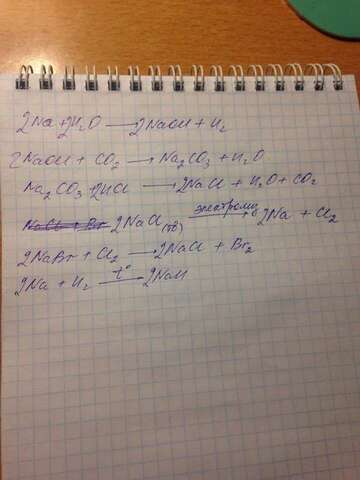 2Na + 2H₂O ⟶ 2NaOH + H₂
2NaOH + CO₂ ⟶ Na₂CO₃ + H₂O
Na₂CO₃ + 2HCl ⟶ 2NaCl + H₂O + CO₂
NaCl + Br 2NaCl(тв) электролиз⟶ 2Na + Cl₂
2NaBr + Cl₂ ⟶ 2NaCl + Br₂
2Na + H₂ t°⟶ 2NaH